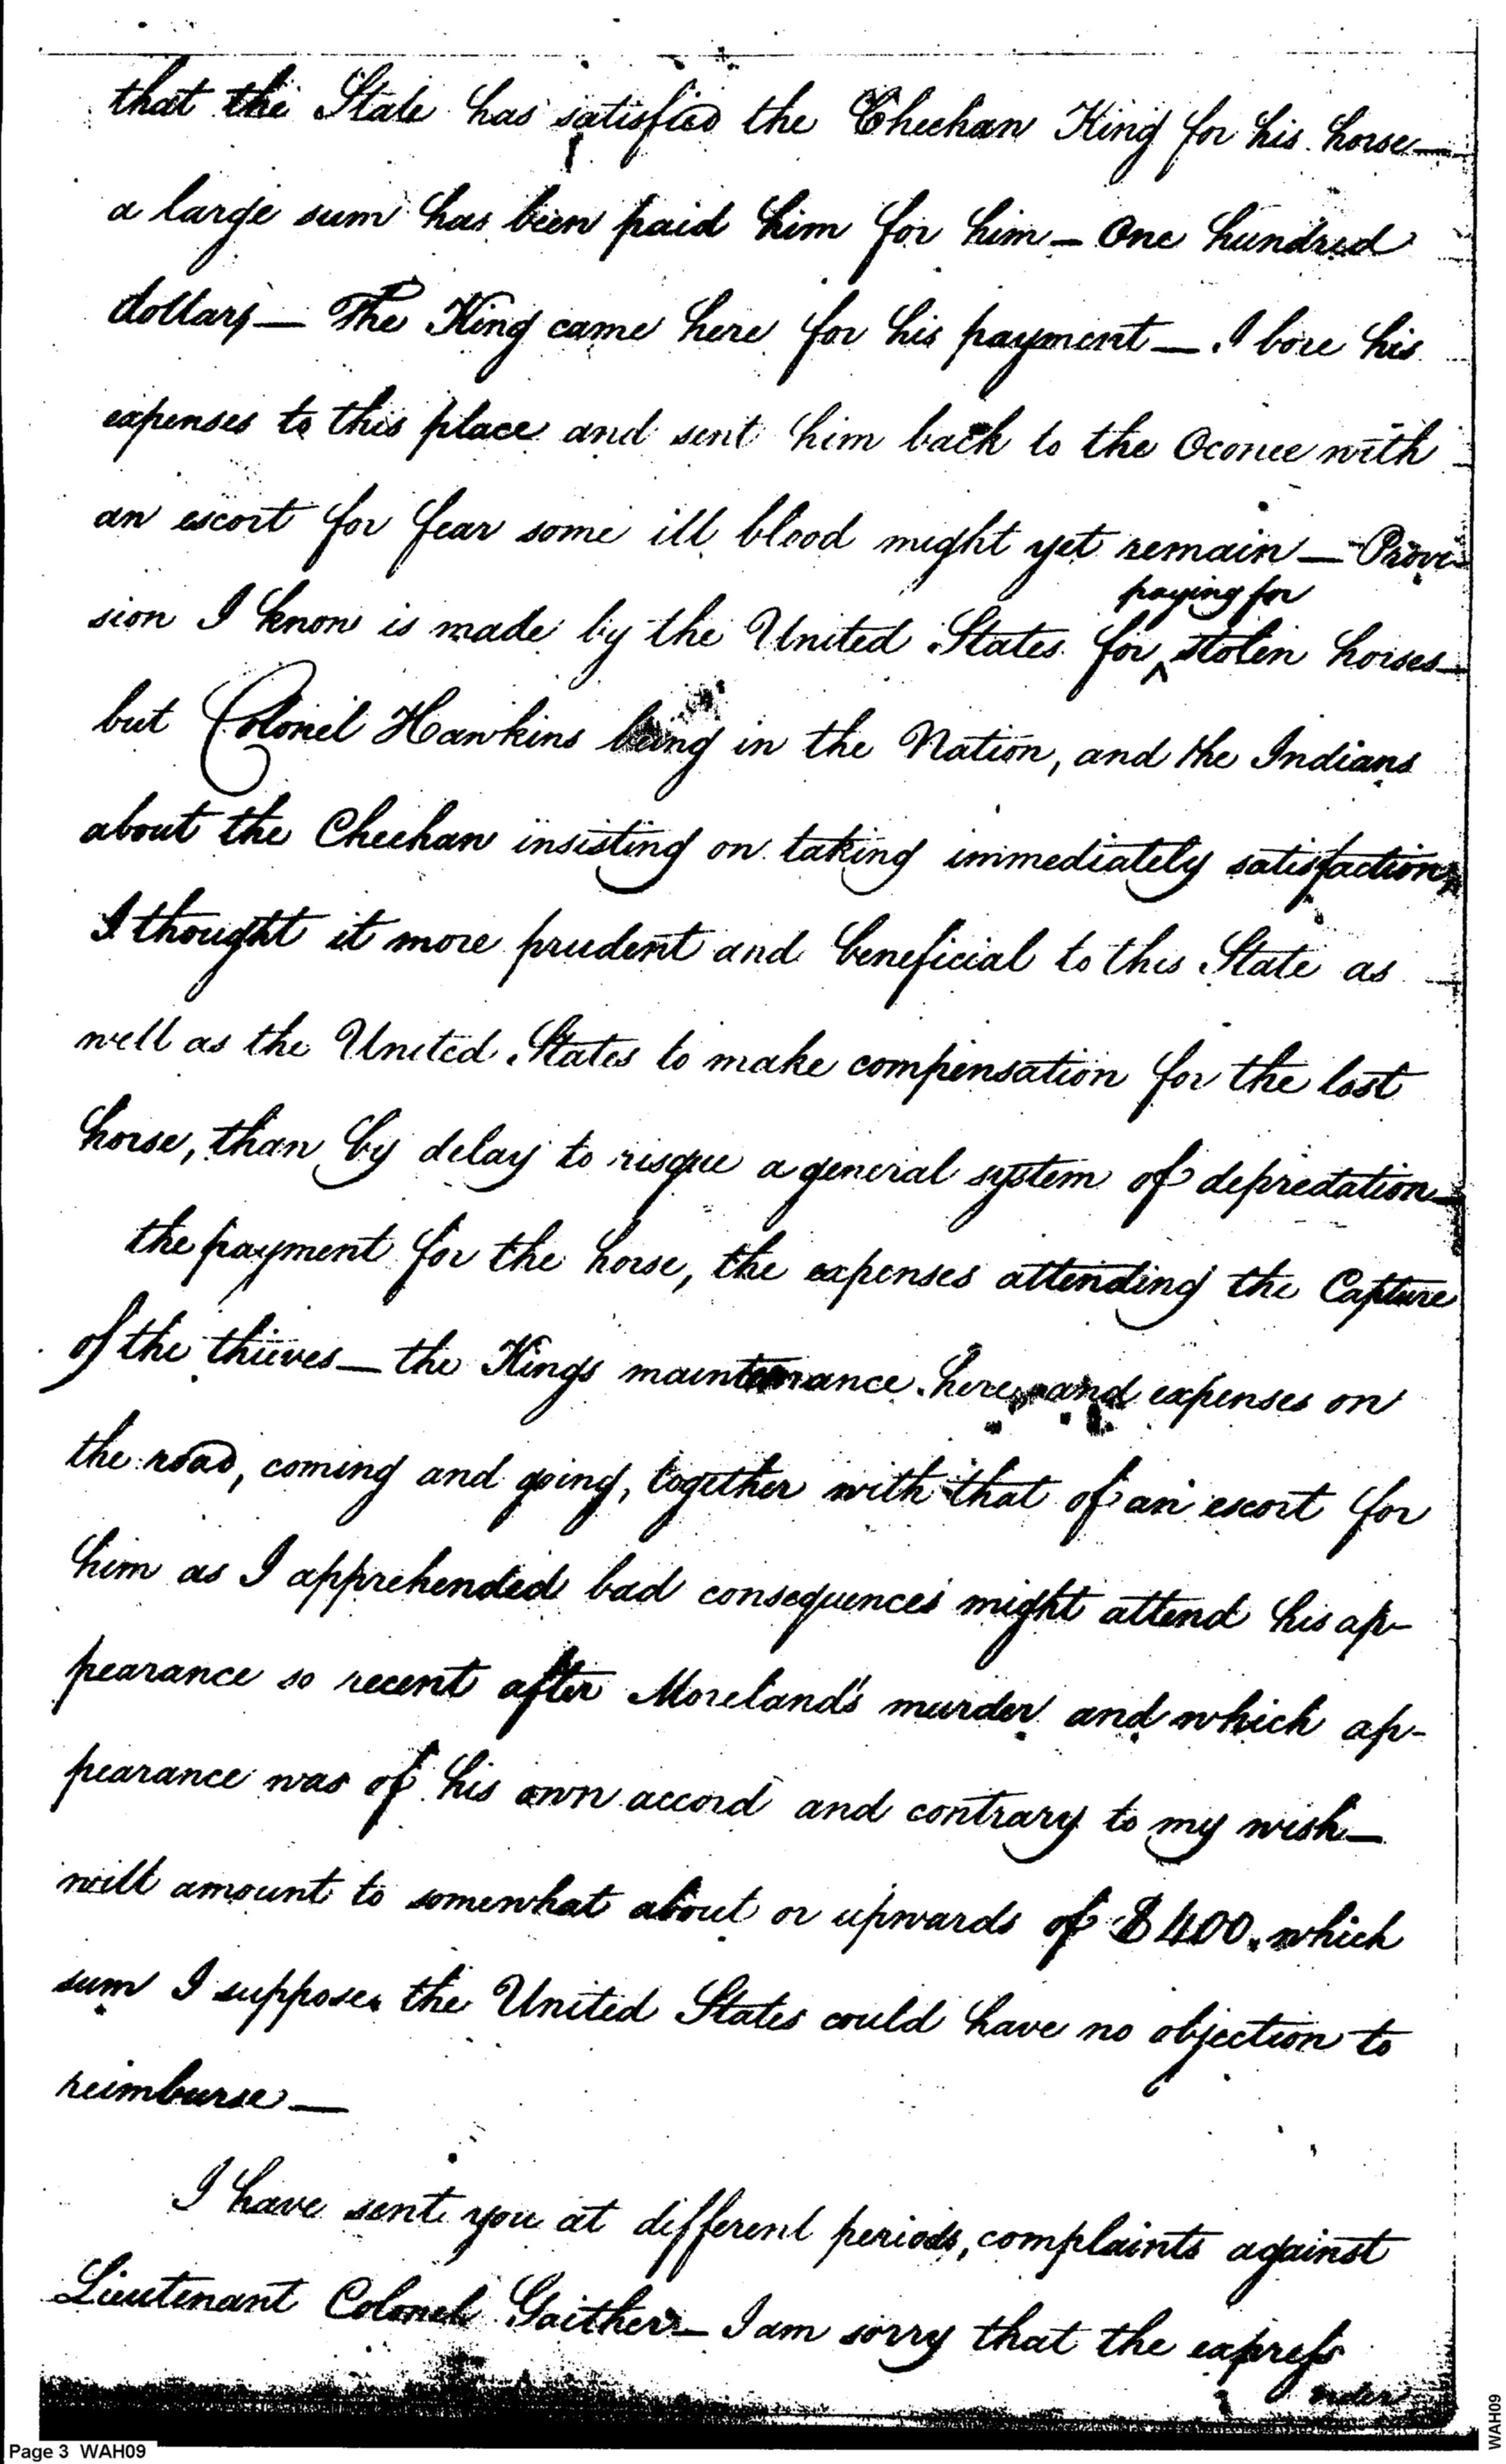 that the State has satisfied the Cheehan King for his horse—
a large sum has been paid him for him — One hundred
dollars — The King came here for his payment — I bore his
expenses to this place and sent him back to the Oconee with
an escort for fear some ill blood might yet remain — Provi-
paying for
sion I know is made by the United States for ^ stolen horses—
but Colonel Hawkins being in the Nation, and the Indians
about the Cheehan insisting on taking immediately satisfaction,
I thought it more prudent and beneficial to this State as
well as the United States to make compensation for the lost
horse, than by delay to risque a general system of depredation—
the payment for the horse, the expenses attending the Capture
of the thieves — the Kings maintenance here, and expenses on
the road, coming and going, together with that of an escort for
him as I apprehended bad consequences might attend his ap-
pearance so recent after Moreland's murder and which ap-
pearance was of his own accord and contrary to my wish—
will amount to somewhat about or upwards of $400. which
sum I suppose the United States could have no objection to
reimburse —
I have sent you at different periods, complaints against
Lieutenant Colonel Gaither — I am sorry that the express
order
Page 3 WAH09
WAH09